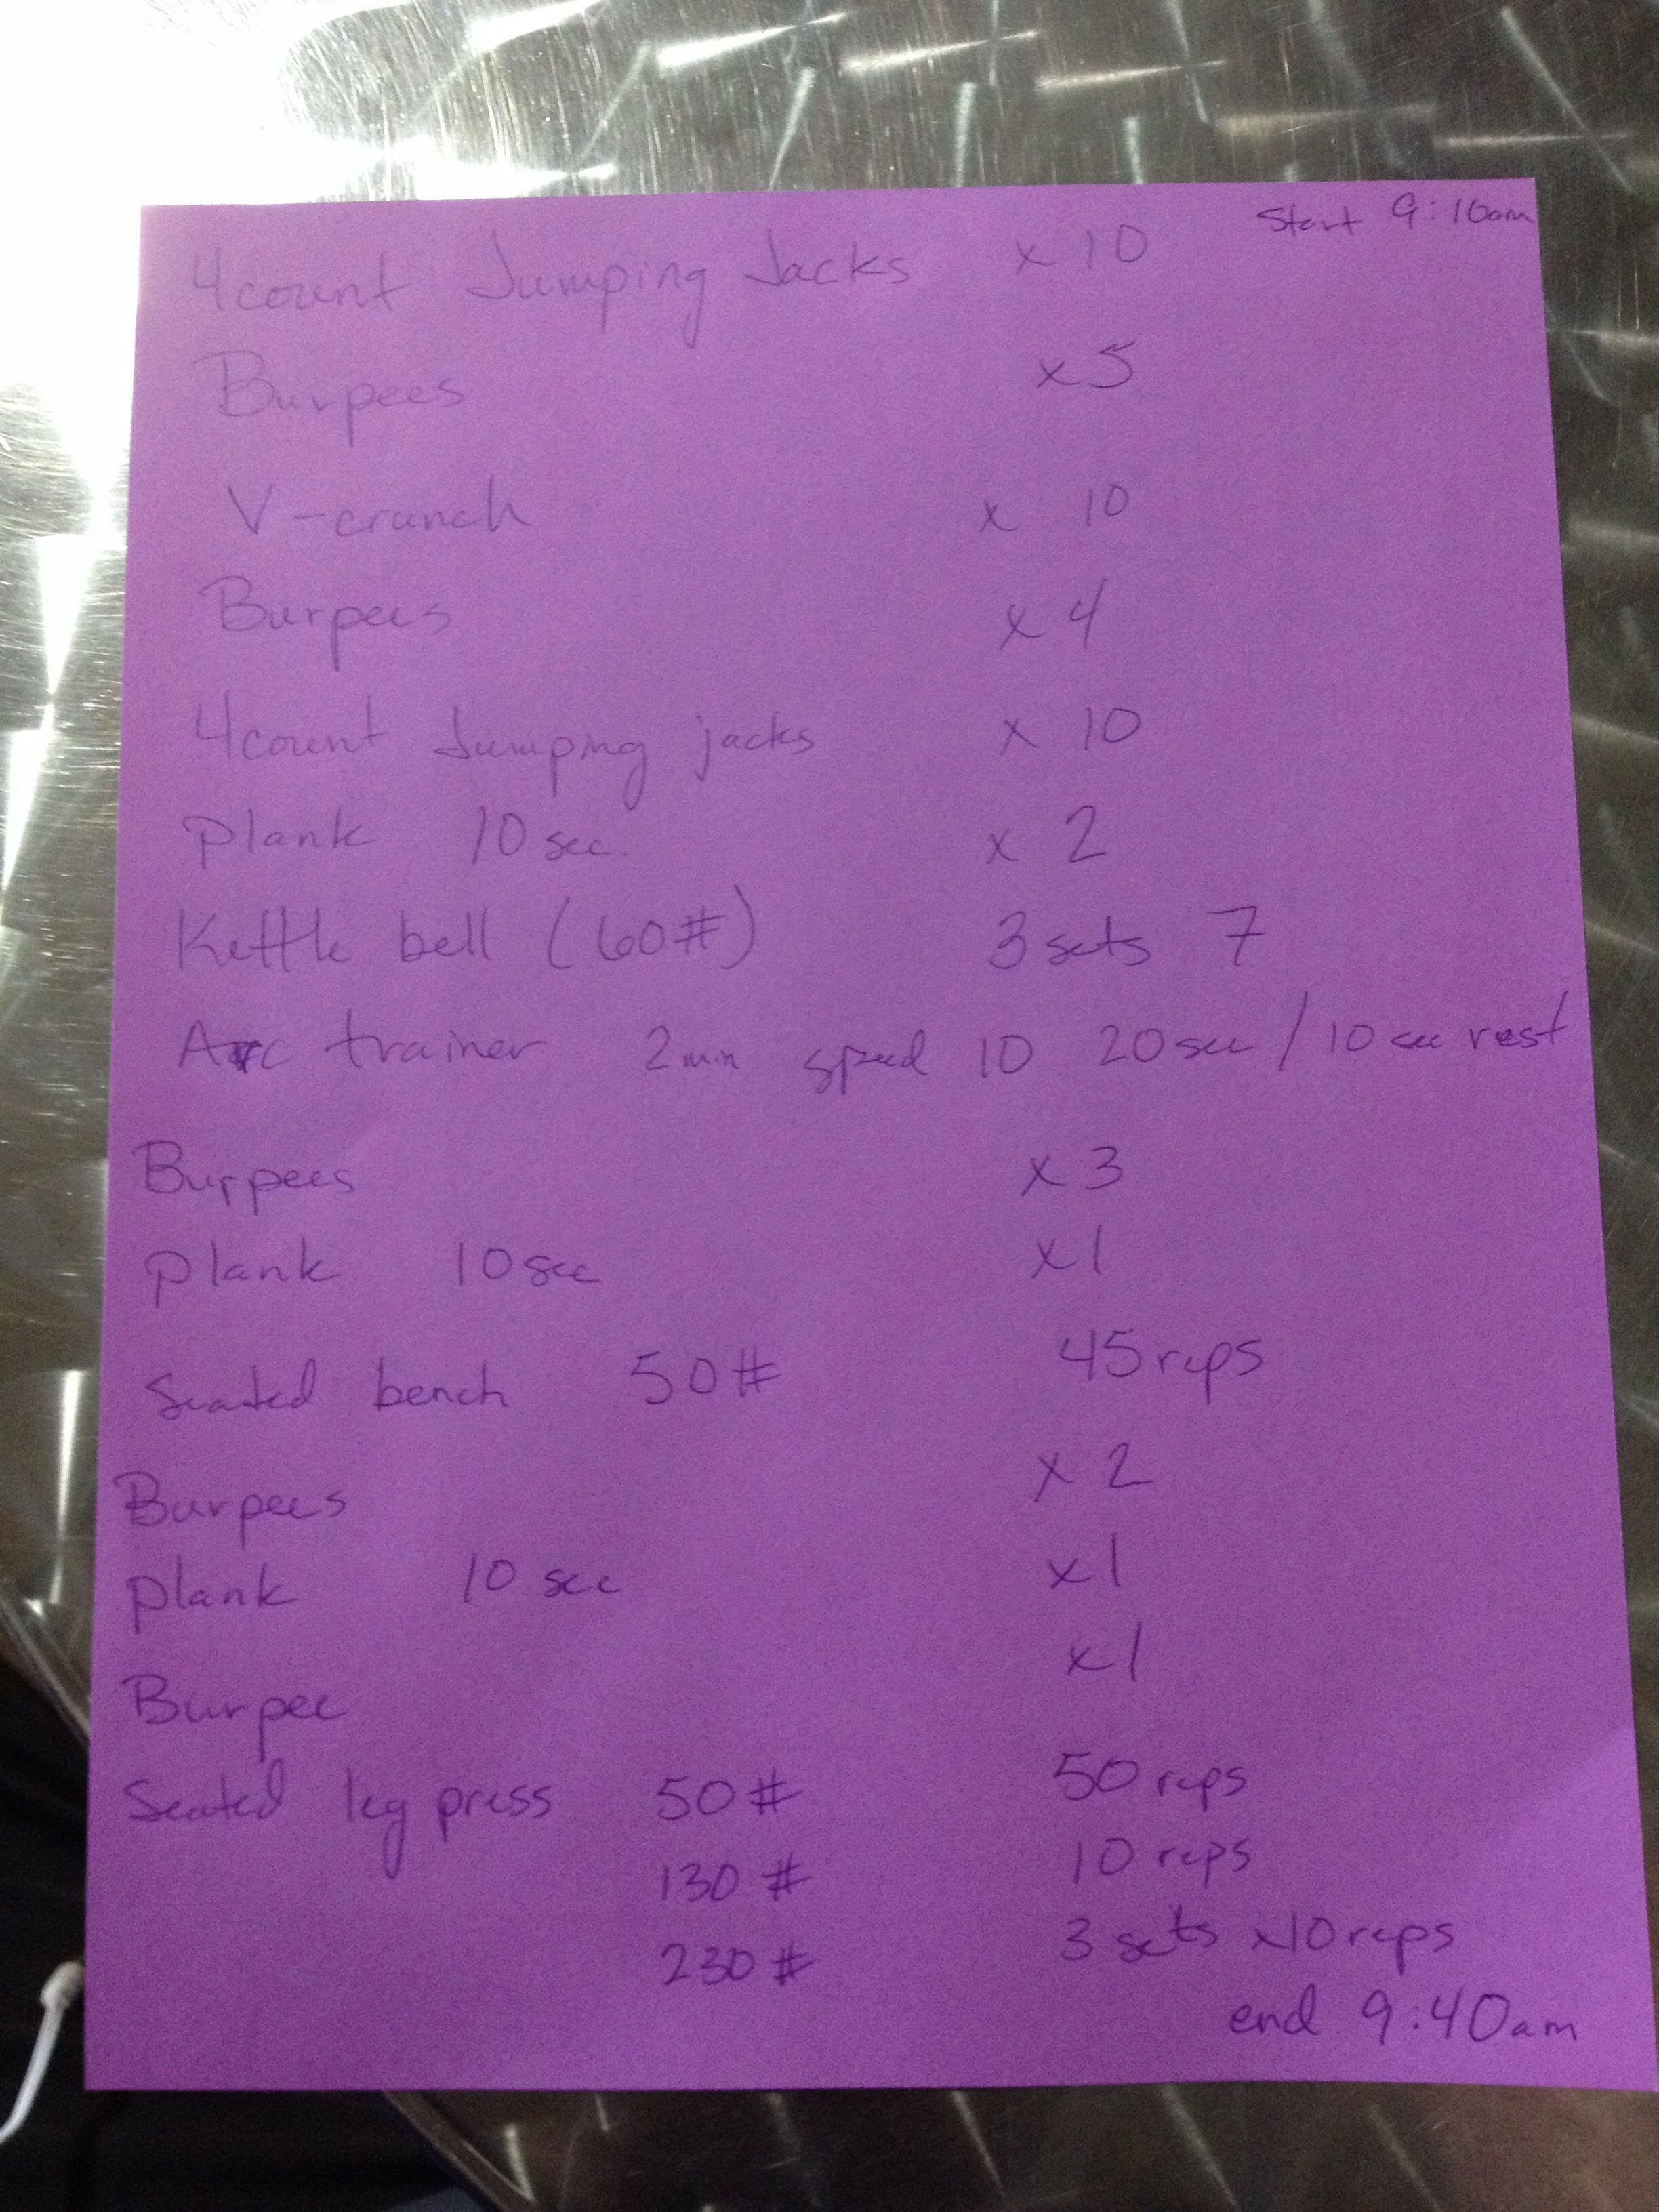 Start 9:10am
4count Jumping Jacks x 10
Burpees x5
V-crunch x 10
Burpees x 4
4count Jumping jacks x 10
plank 10 sec x 2
Kettle bell (60#) 3 sets 7
Arc trainer 2 min speed 10 20 sec / 10 sec rest
Burpees x 3
plank 10 sec x1
Seated bench 50# 45 reps
Burpees x 2
plank 10 sec x1
Burpee x1
Seated leg press 50# 50 reps
130# 10 reps
230# 3 sets x10 reps
end 9:40am